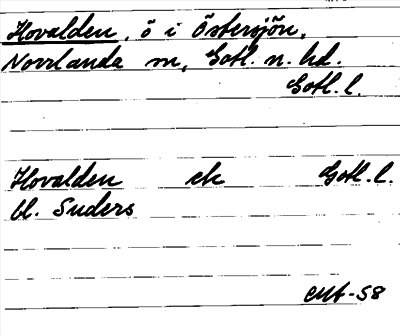 Hovalden, ö i Östersjön,
Norrlanda sn, Gotl. n. hd.
Gotl. l.
Hovalden ek Gotl. l.
bl. Suders